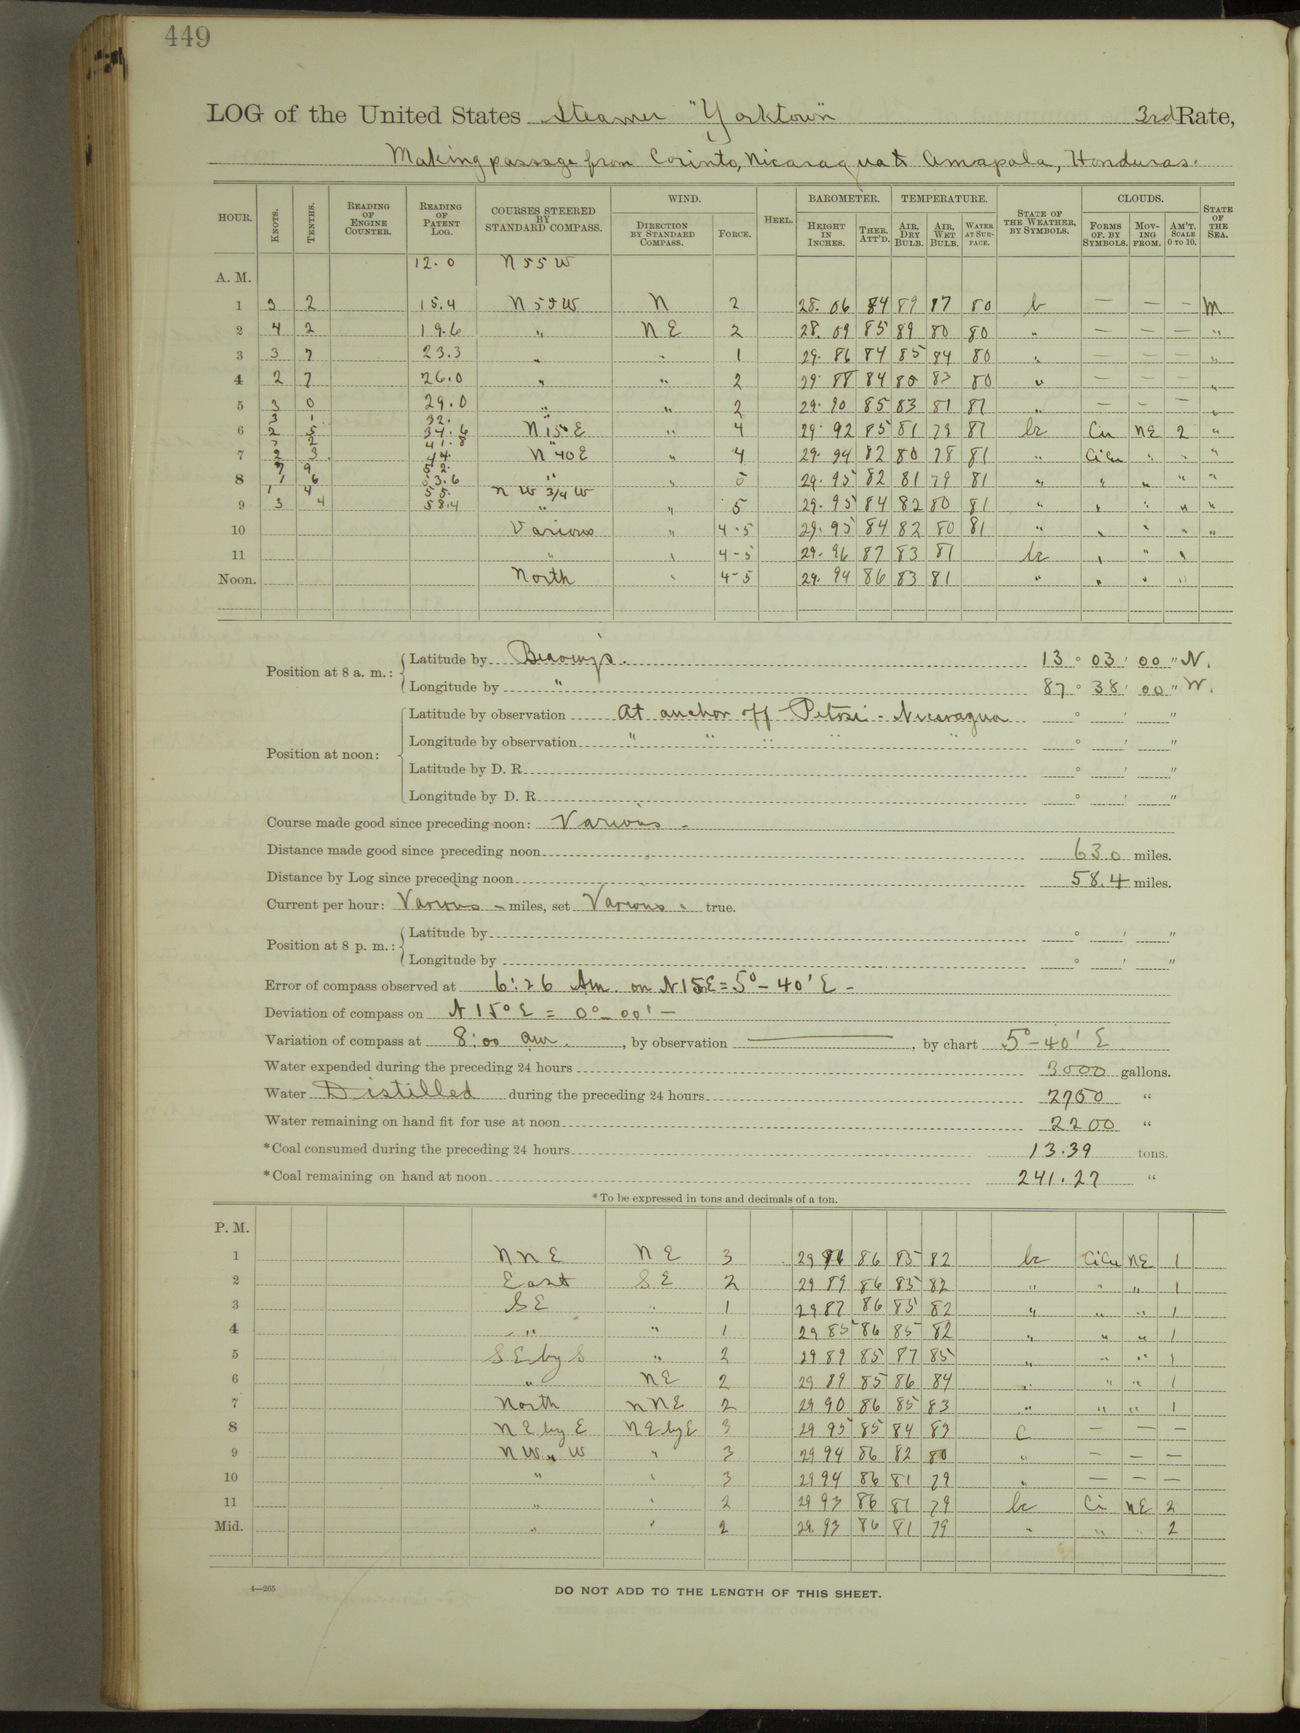 449
LOG of the United States Steamer "Yorktown" 3rd Rate,
Making passage from Corinto, Nicaragua to Amapala, Honduras.
HOUR. KNOTS. TENTHS. READING OF ENGINE COUNTER. READING OF PATENT LOG. COURSES STEERED BY STANDARD COMPASS. WIND. DIRECTION BY STANDARD COMPASS. FORCE. HEEL. BAROMETER. HEIGHT IN INCHES. THER. ATT'D. TEMPERATURE. AIR, DRY BULB. AIR, WET BULB. WATER AT SURFACE. STATE OF THE WEATHER, BY SYMBOLS. CLOUDS. FORMS OF, BY SYMBOLS. MOVING FROM. AM'T. SCALE 0 TO 10. STATE OF THE SEA.
A. M. 12.0 N 55 W
1 3 2 15.4 N 55 W N 2 28. 06 84 89 87 80 b — — — M
2 4 2 19.6 " NE 2 28. 09 85 89 80 80 " — — — "
3 3 7 23.3 " " 1 29. 86 84 85 84 80 " — — — "
4 2 7 26.0 " " 2 29. 88 84 80 83 80 " — — — "
5 3 0 29.0 " " 2 29. 90 85 83 81 81 " — — — "
3 1 32.
6 2 5 34.6 N 15° E " 4 29. 92 85 81 79 81 bc Cu NE 2 "
2 41.8
7 2 3 44. N 40 E " 4 29. 94 82 80 78 81 " CiCu " " "
7 9 52.
8 1 6 53.6 " " 5 29. 95 82 81 79 81 " " " " "
1 4 55. NW 3/4 W
9 3 4 58.4 " " 5 29. 95 84 82 80 81 " " " " "
10 Various " 4-5 29. 95 84 82 80 81 " " " " "
11 " " 4-5 29. 96 87 83 81 bc " " "
Noon. North " 4-5 29. 94 86 83 81 " " " "
Position at 8 a. m.: Latitude by Bearings. 13 ° 03 ′ 00 ″ N.
Longitude by " 87 ° 38 ′ 00 ″ W.
Position at noon: Latitude by observation At anchor off Potosi - Nicaragua ° ′ ″
Longitude by observation " " " " " ° ′ ″
Latitude by D. R. ° ′ ″
Longitude by D. R. ° ′ ″
Course made good since preceding noon: Various -
Distance made good since preceding noon 63.0 miles.
Distance by Log since preceding noon 58.4 miles.
Current per hour: Various - miles, set Various - true.
Position at 8 p. m.: Latitude by ° ′ ″
Longitude by ° ′ ″
Error of compass observed at 6:26 Am. on N15E = 5° - 40' E -
Deviation of compass on N 15° E = 0° - 00' -
Variation of compass at 8:00 am. , by observation — , by chart 5° - 40' E
Water expended during the preceding 24 hours 3000 gallons.
Water Distilled during the preceding 24 hours 2750 "
Water remaining on hand fit for use at noon 2200 "
*Coal consumed during the preceding 24 hours 13.39 tons.
*Coal remaining on hand at noon 241.27 "
*To be expressed in tons and decimals of a ton.
P. M.
1 NNE NE 3 29 86 85 82 bc CiCu NE 1
2 East SE 2 29 89 86 85 82 " " " 1
3 SE " 1 29 87 86 85 82 " " " 1
4 " " 1 29 85 86 85 82 " " " 1
5 SE by S " 2 29 89 85 87 85 " " " 1
6 " NE 2 29 89 85 86 84 " " " 1
7 North NNE 2 29 90 86 85 83 " " " 1
8 NE by E NE by E 3 29 95 85 84 83 c — — —
9 NW " W " 3 29 94 86 82 80 " — — —
10 " " 3 29 94 86 81 79 " — — —
11 " " 2 29 93 86 81 79 bc Ci NE 2
Mid. " " 2 29. 93 86 81 79 " " " 2
4—265
DO NOT ADD TO THE LENGTH OF THIS SHEET.